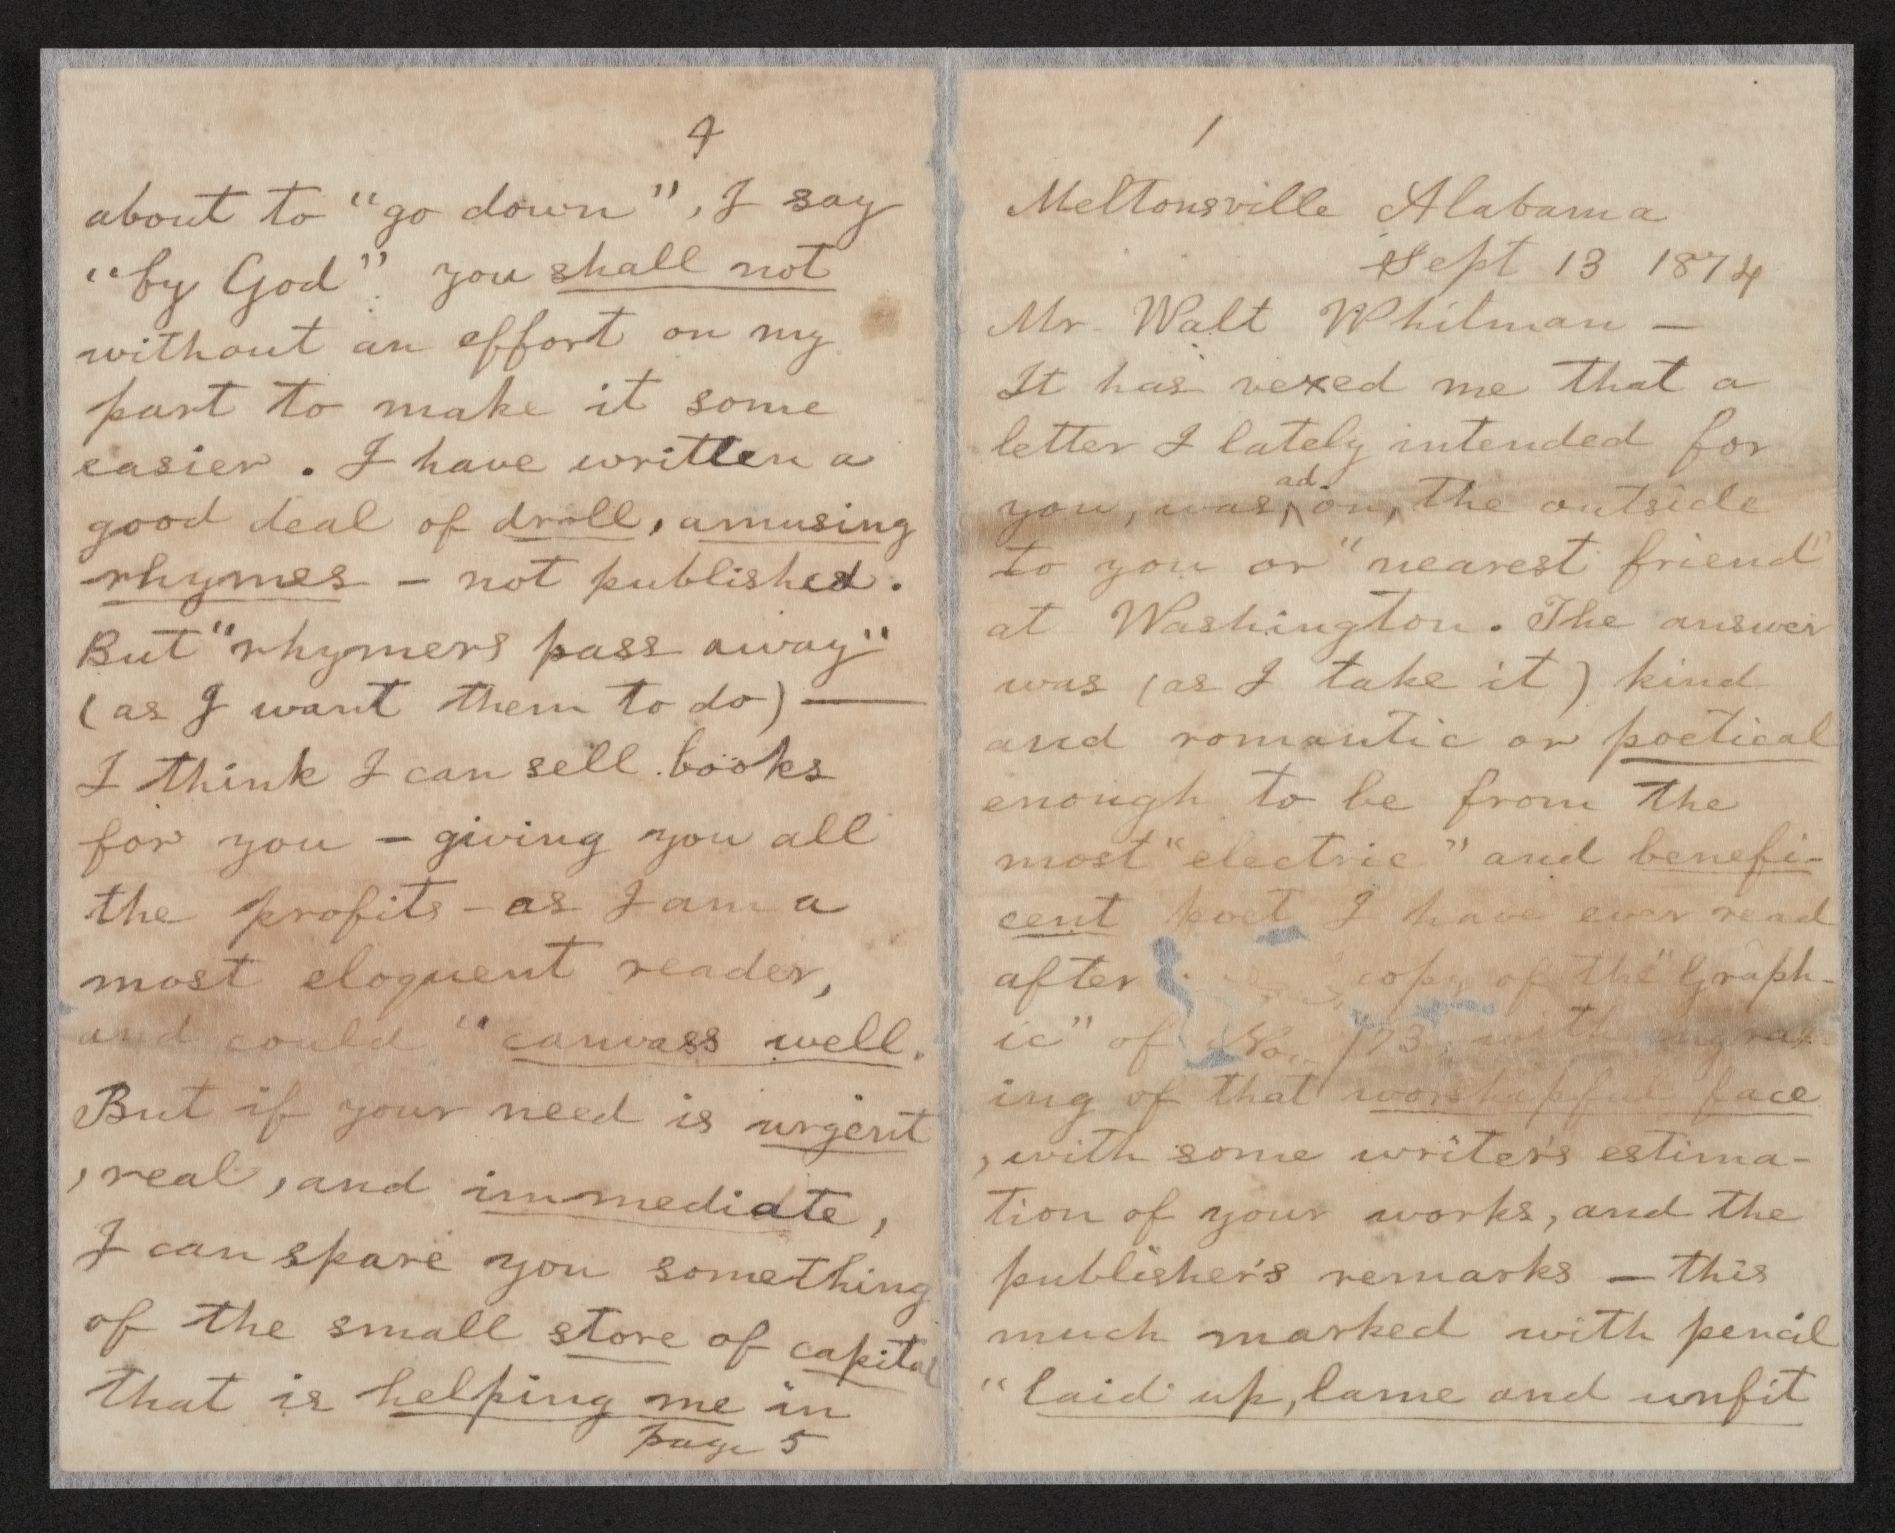 4
about to "go down", I say
"by God" you shall not
without an effort on my
part to make it some
easier. I have written a
good deal of droll, amusing
rhymes - not published.
But "rhymers pass away"
(as I want them to do) —
I think I can sell books
for you - giving you all
the profits - as I am a
most eloquent reader,
and could "canvass well.
But if your need is urgent
, real, and immediate,
I can spare you something
of the small store of capital
that is helping me in
page 5
1
Meltonsville Alabama
Sept 13 1874
Mr. Walt Whitman —
It has vexed me that a
letter I lately intended for
you, was, ad on, the outside
to you or "nearest friend"
at Washington. The answer
was (as I take it) kind
and romantic or poetical
enough to be from the
most "electric" and benefi-
cent poet I have ever read
after copy of the "Graph-
ic" of Nov /73, with engrav-
ing of that worshipful face
, with some writer's estima-
tion of your works, and the
publisher's remarks — this
much marked with pencil
"laid up, lame and unfit